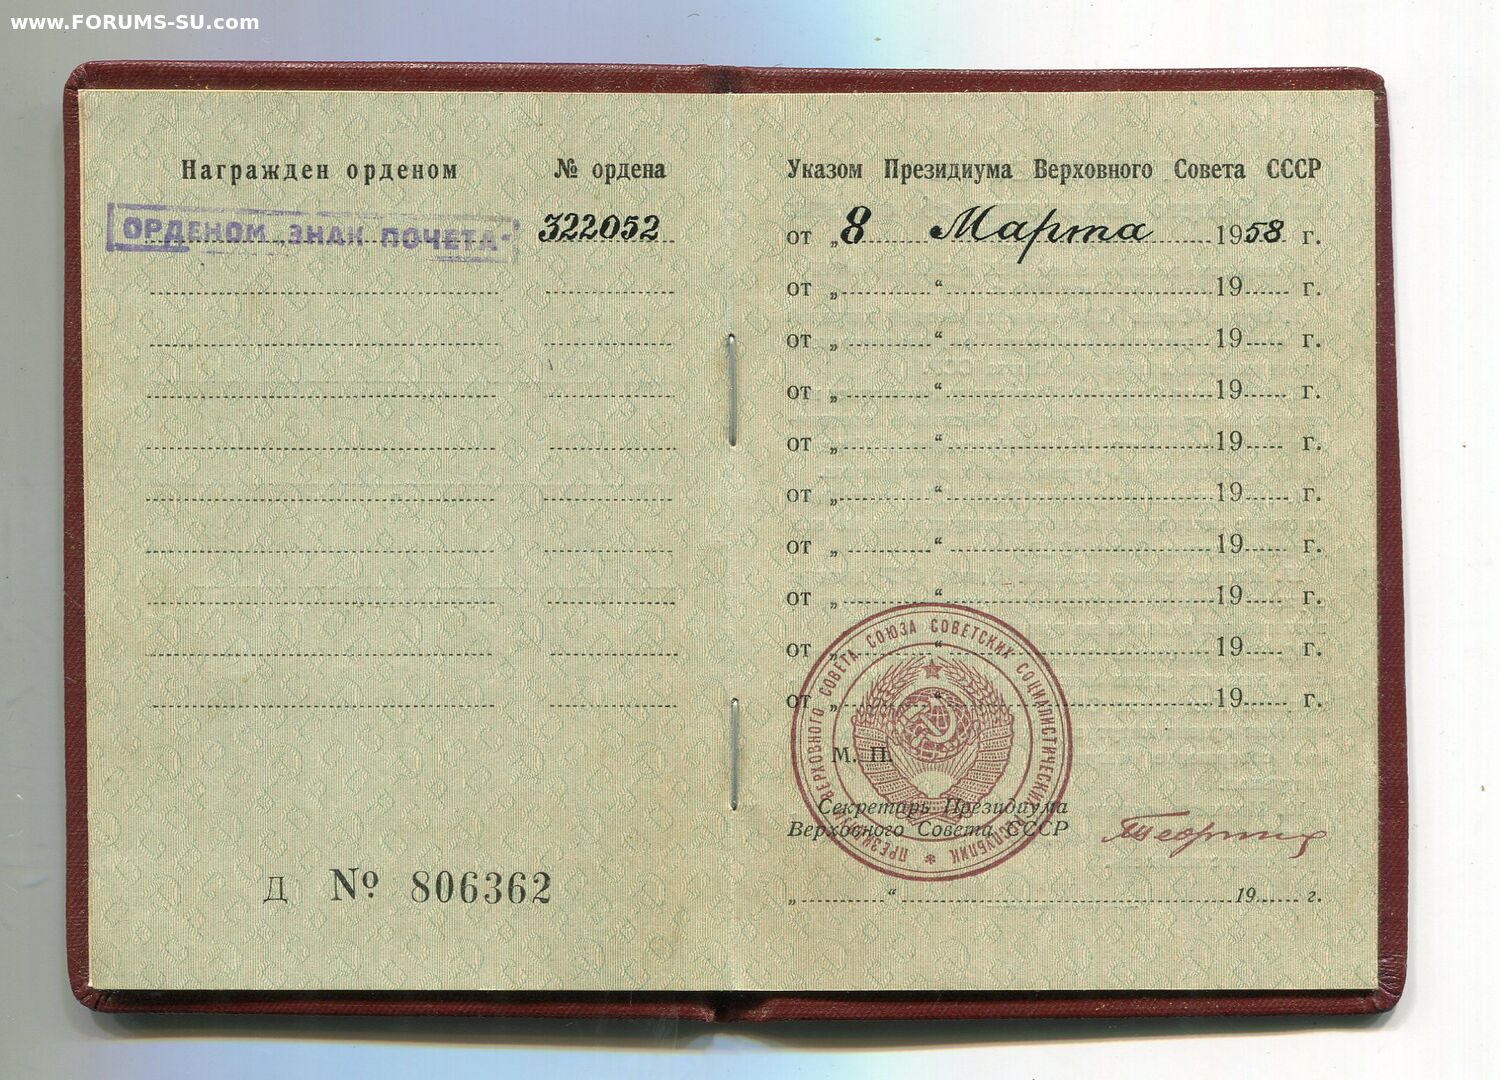 www.FORUMS-SU.com
Награжден орденом
№ ордена
ОРДЕНОМ „ЗНАК ПОЧЕТА"
322052
Д № 806362
Указом Президиума Верховного Совета СССР
от „8 Марта 1958 г.
от „ “ 19 г.
от „ “ 19 г.
от „ “ 19 г.
от „ “ 19 г.
от „ “ 19 г.
от „ “ 19 г.
от „ “ 19 г.
от „ “ 19 г.
от „ “ 19 г.
ПРЕЗИДИУМ ВЕРХОВНОГО СОВЕТА СОЮЗА СОВЕТСКИХ СОЦИАЛИСТИЧЕСКИХ РЕСПУБЛИК *
М. П.
Секретарь Президиума
Верховного Совета СССР
„ “ 19 г.